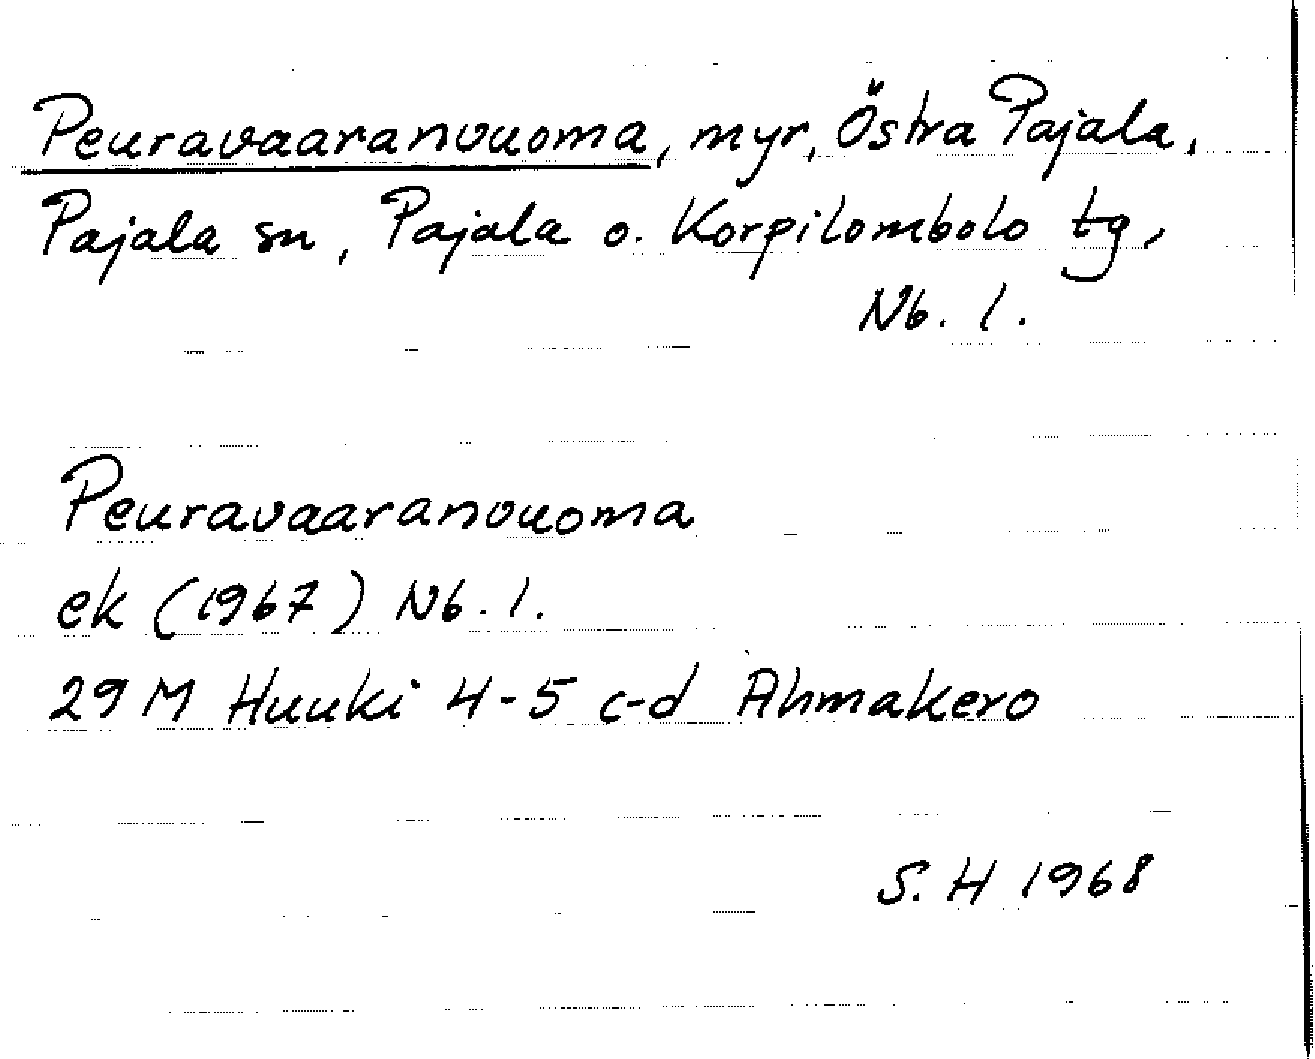 Peuravaaranvuoma, myr, Östra Pajala,
Pajala sn, Pajala o. Korpilombolo tg,
Nb. l.
Peuravaaranvuoma
ek (1967) Nb. l.
29 M Huuki 4-5 c-d Ahmakero
S. H 1968